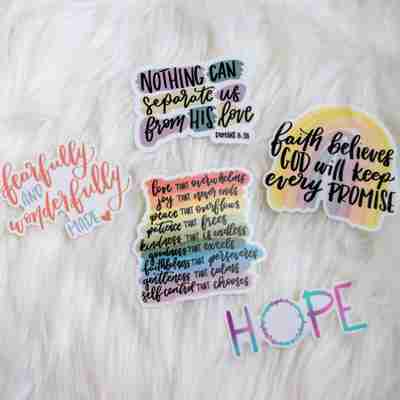 NOTHING CAN
separate us
from HIS love
ROMANS 8:38
fearfully
AND
wonderfully
MADE
faith believes
GOD will keep
every PROMISE
love THAT overwhelms
joy THAT never ends
peace THAT overflows
patience THAT frees
kindness THAT is endless
goodness THAT excels
faithfulness THAT perseveres
gentleness THAT calms
self control THAT chooses
HOPE